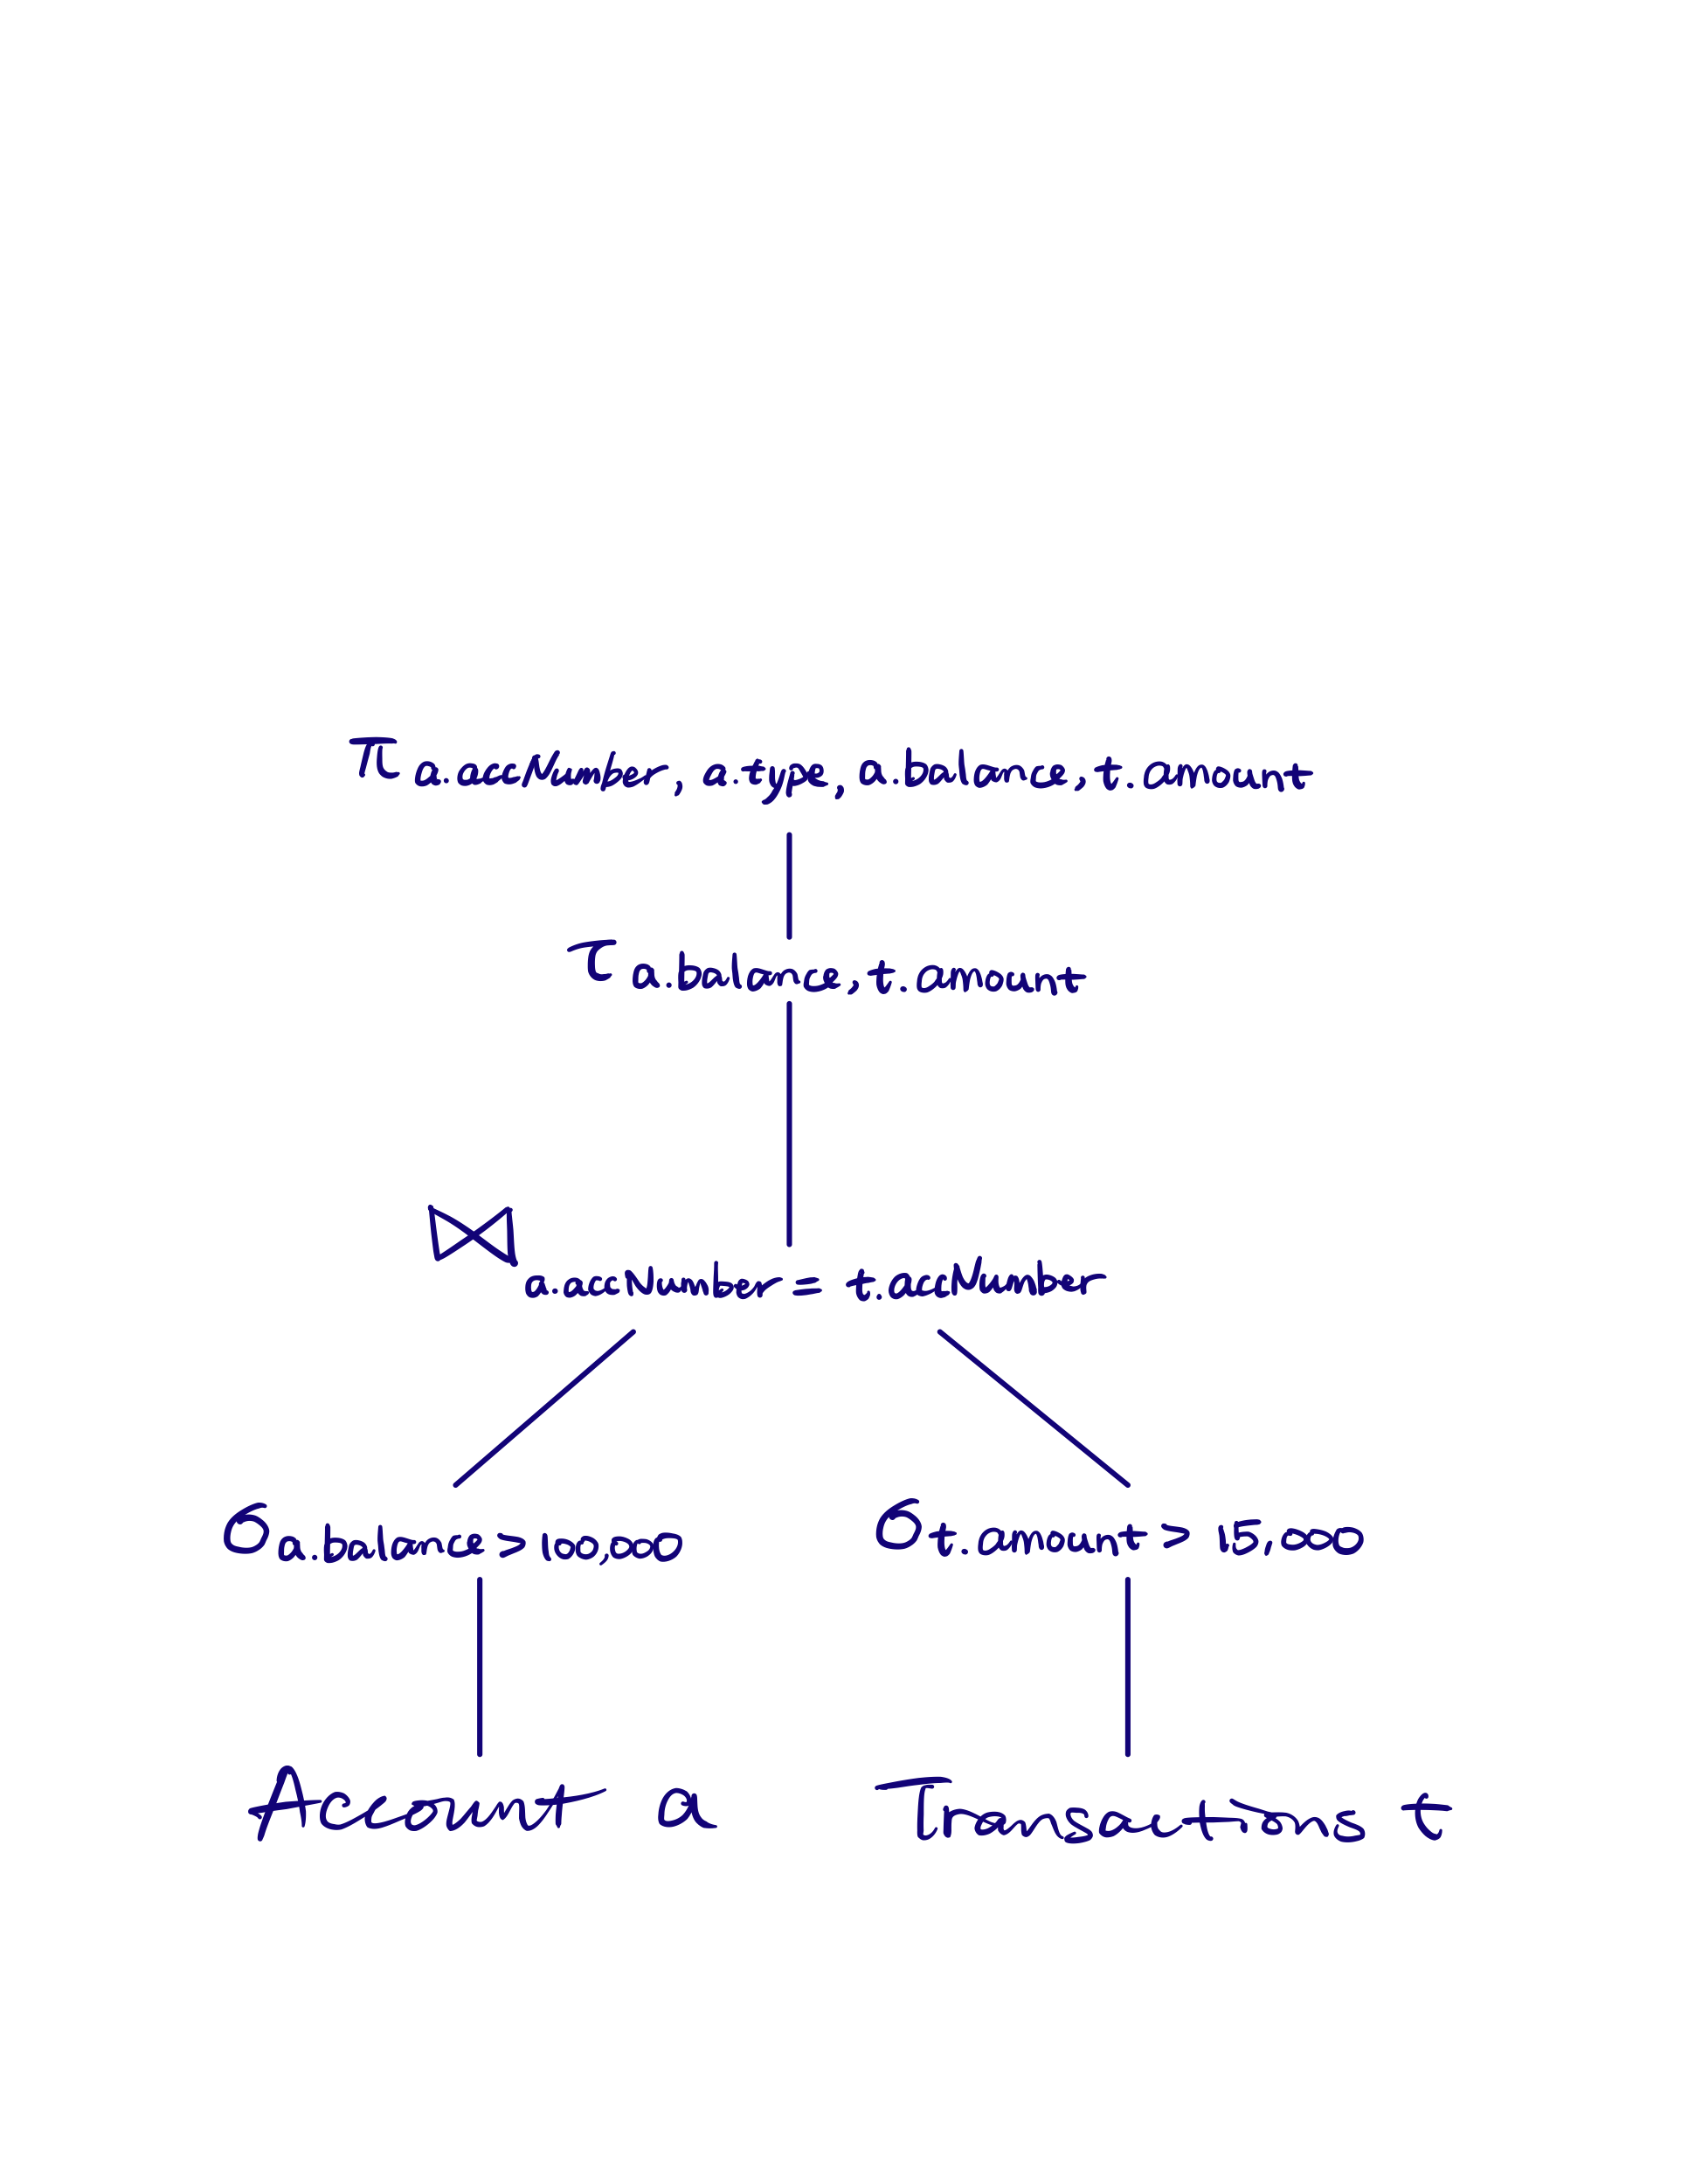 π a.accNumber, a.type, a.balance, t.amount
τ a.balance, t.amount
⋈ a.accNumber = t.accNumber
σ a.balance > 100,000 σ t.amount > 15,000
Account a Transactions t